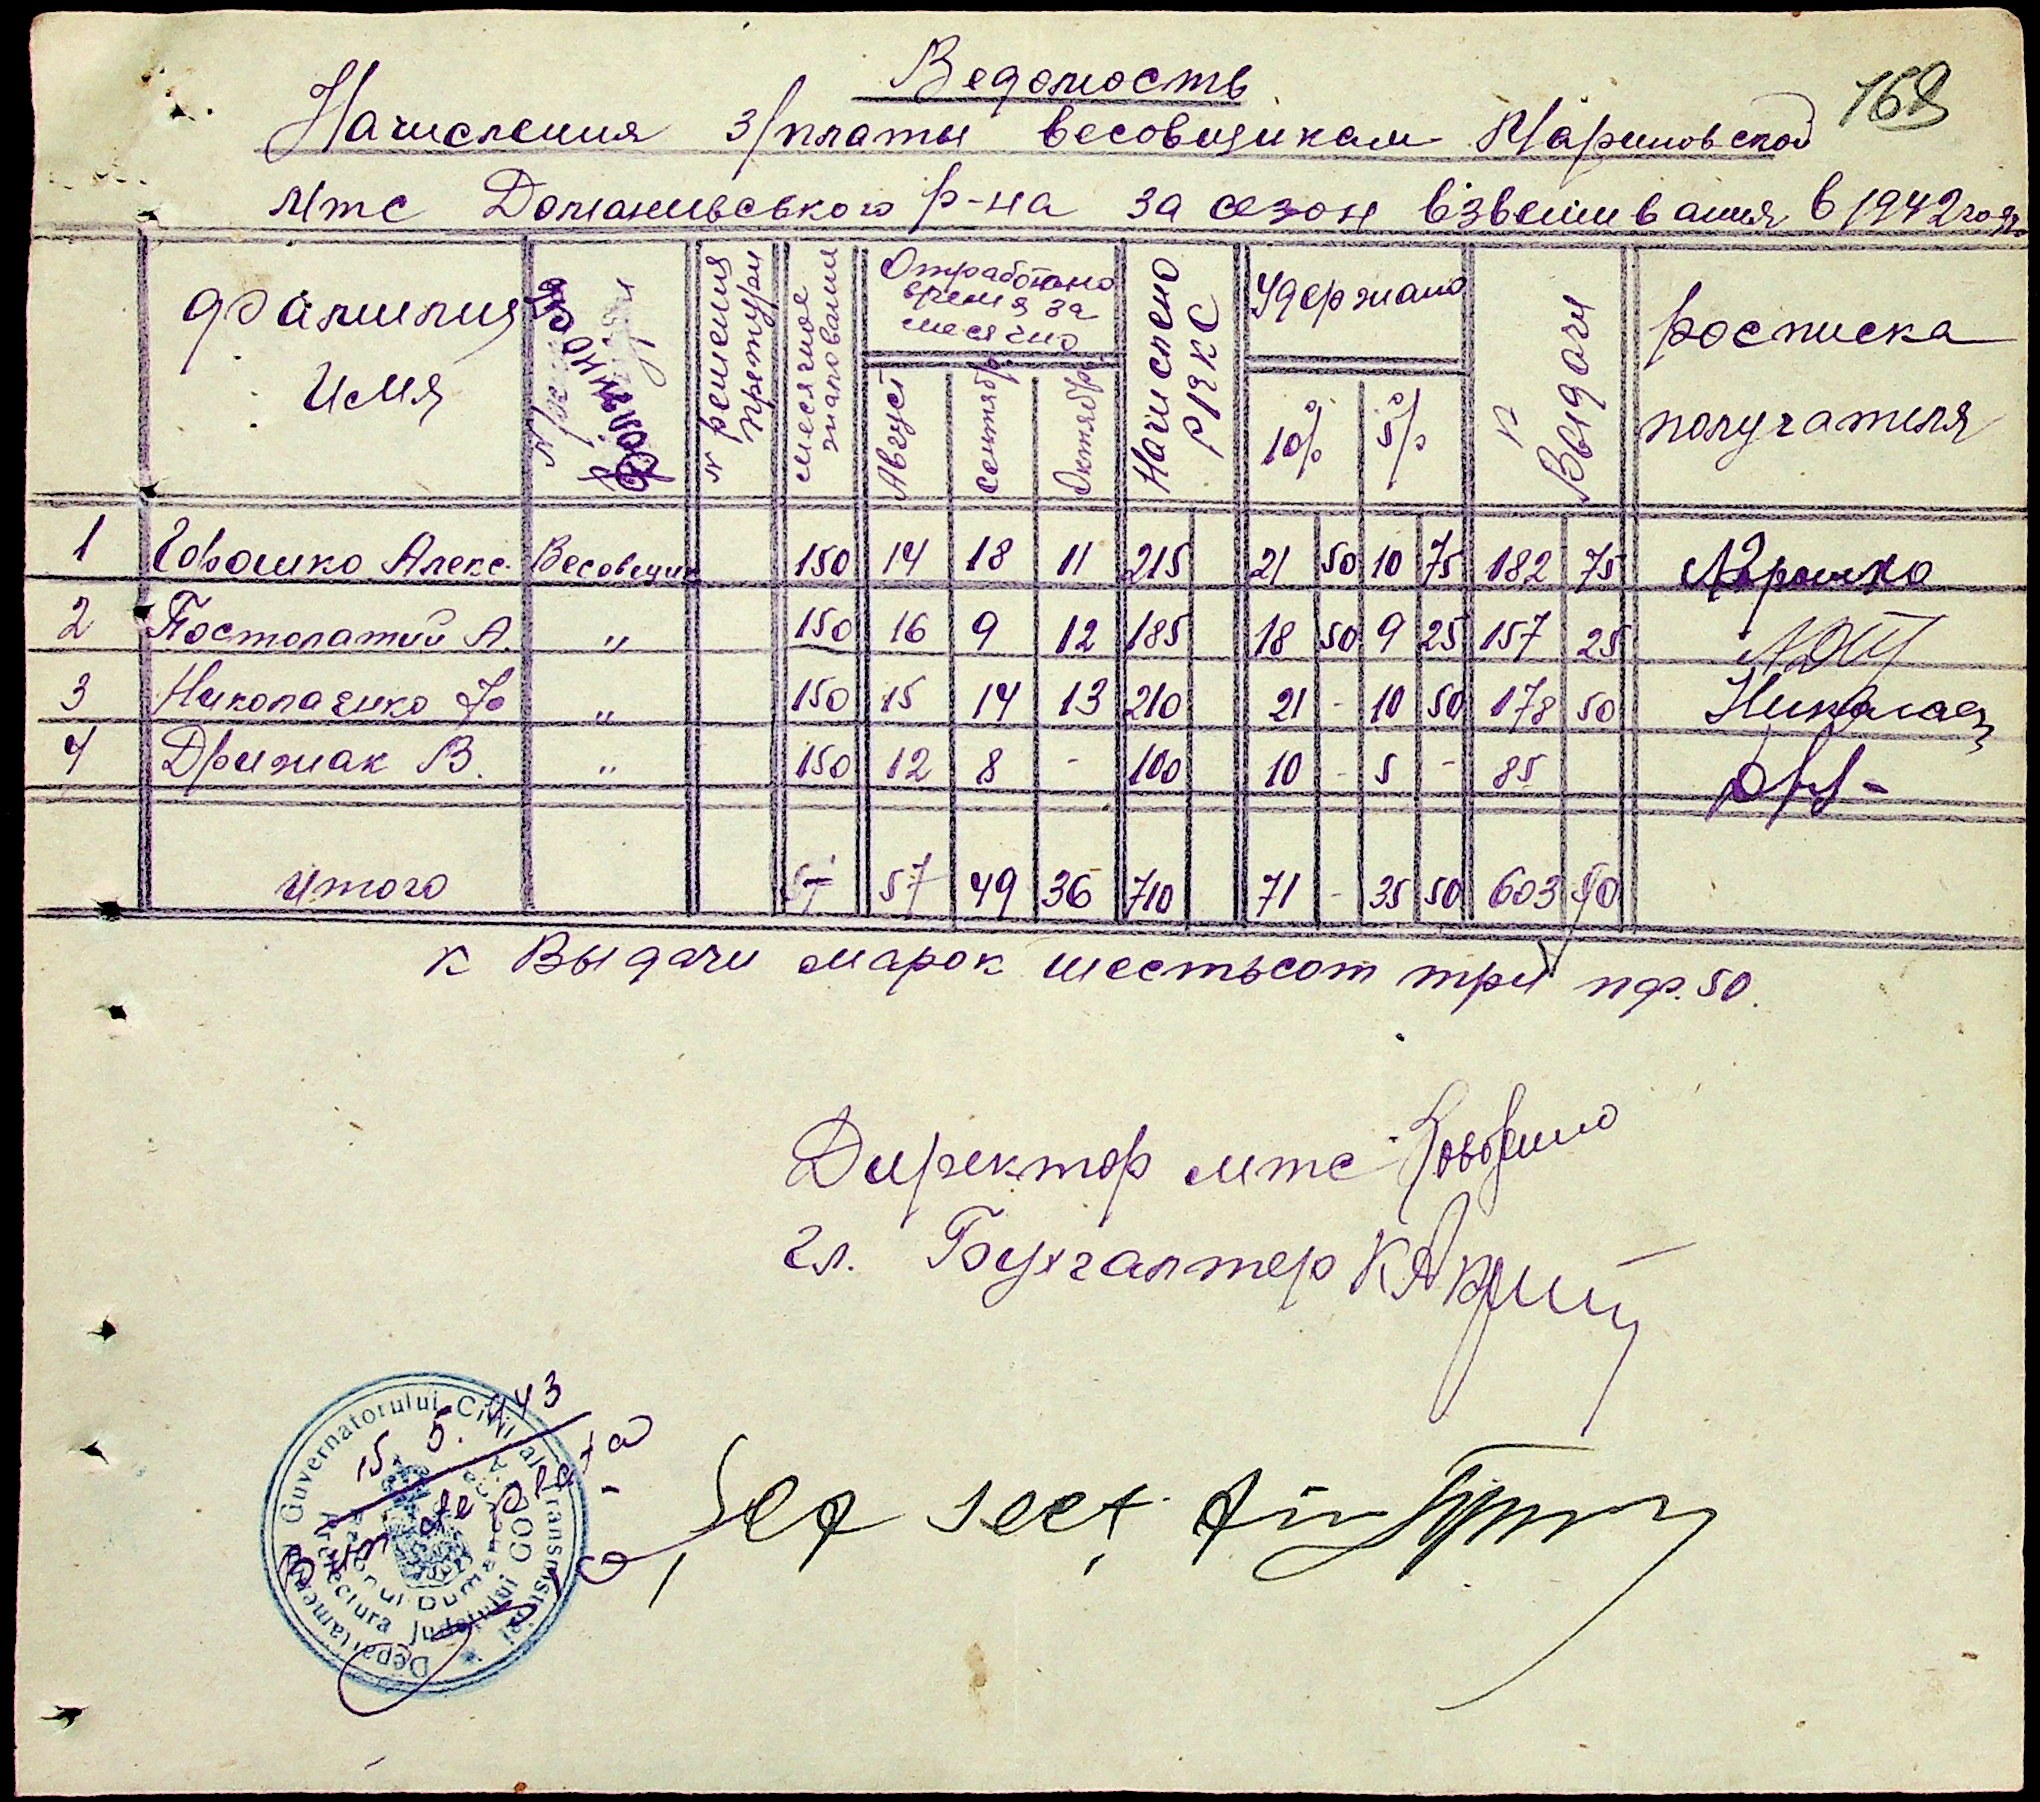 Ведомость
168
Начисления з/платы весовщикам Мариновской
мтс Доманивського р-на за сезон взвешивания в 1942 году.
Фамилия Имя | Должность | № решения претуры | месячное жалование | Отработано время за месячно | Начислено РІЯКС | Удержано | К Выдачи | росписка получателя
Август | Сентябр. | Октябр. | 10% | 5%
1 Горошко Алекс. Весовщик 150 14 18 11 215 21 50 10 75 182 75
2 Постолатий А. „ 150 16 9 12 185 18 50 9 25 157 25
3 Николаенко „ 150 15 14 13 210 21 - 10 50 178 50 Николаен
4 Дрижак В. „ 150 12 8 - 100 10 - 5 - 85
Итого 57 49 36 710 71 - 35 50 603 50
к Выдачи марок шестьсот три пф. 50.
Директор мтс
гл. Бухгалтер
15. 5. 943
Bun de plata
Șef sect. fin
Guvernatorului Civil al Transnistriei * Departament
Prefectura Județului GOLTA